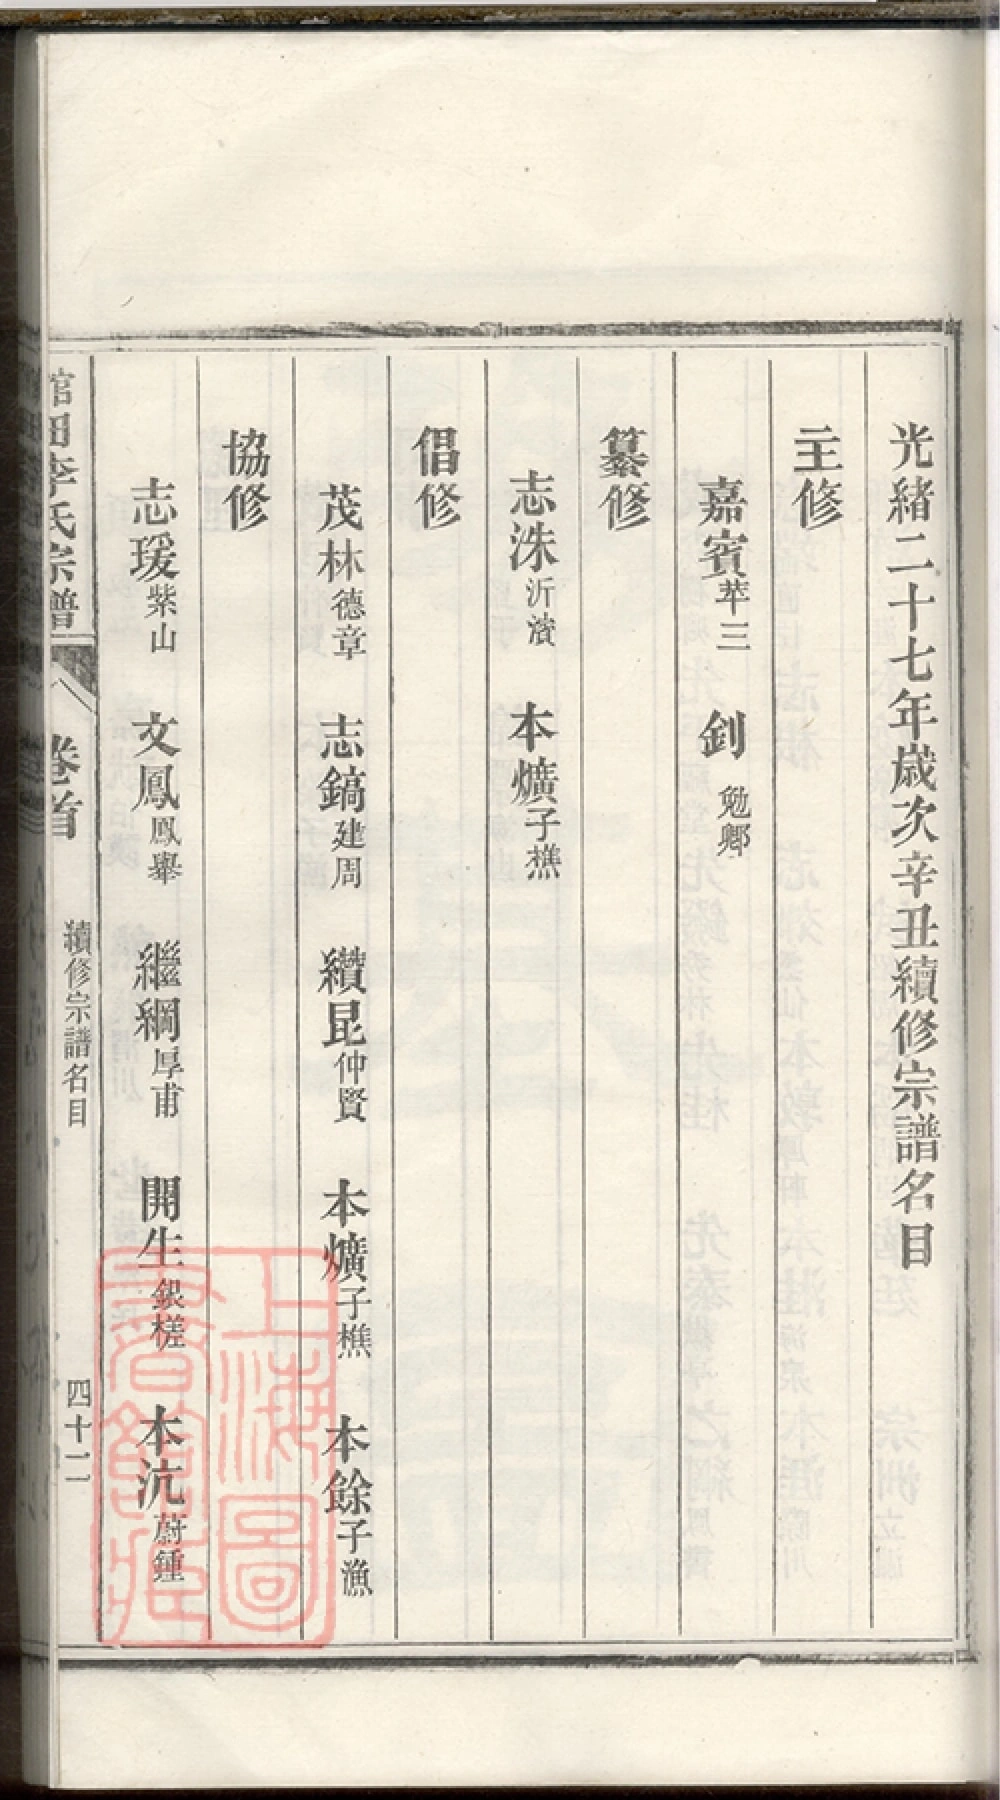 光緒二十七年歲次辛丑續修宗譜名目
主修
嘉賓苹三 釗勉卿
纂修
志洙沂濱 本爌子樵
倡修
茂林德章 志鎬建周 纘昆仲賢 本爌子樵 本餘子漁
協修
志瑗紫山 文鳳鳳舉 繼綱厚甫 開生銀槎 本沆蔚鍾
館田李氏宗譜 卷首 續修宗譜名目 四十二
上海圖書館藏